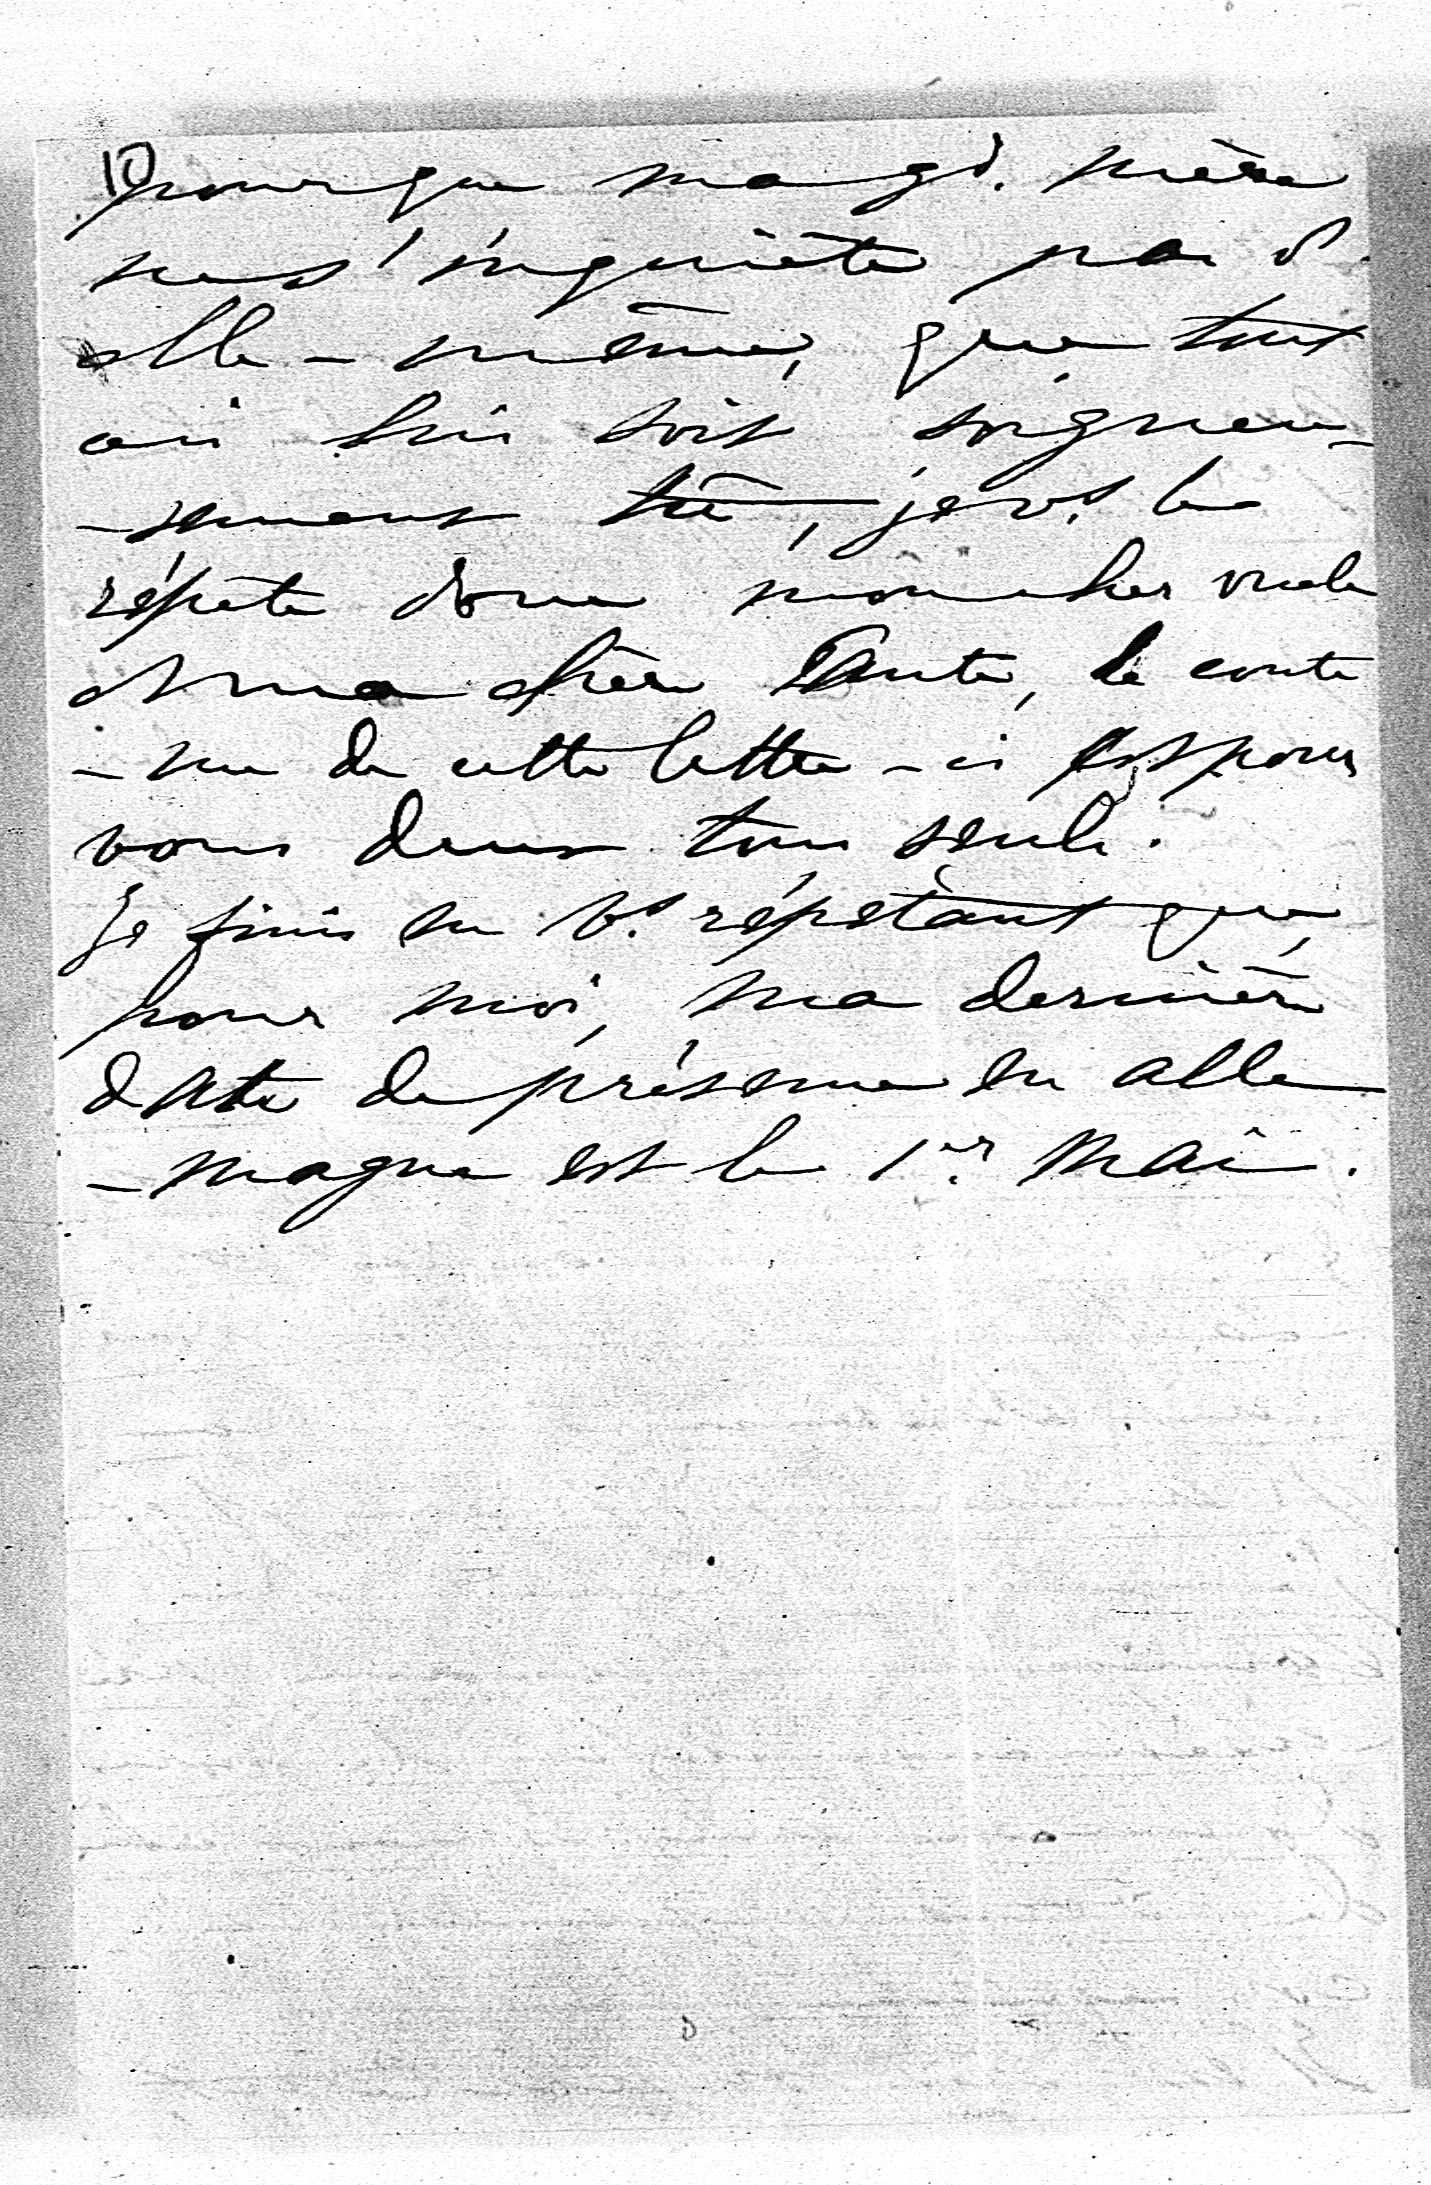 10
pour que ma gd. mère
ne s'inquiète pas d'
elle-même, que tout
ceci lui soit soigneu-
-sement tû, je vs. le
répète donc mon cher oncle
et ma chère Tante, le conte
-nu de cette lettre-ci est pour
vous deux tous seuls.
Je finis en vs. répétant que
pour moi, ma dernière
date de présence en alle
-magne est le 1er. Mai.